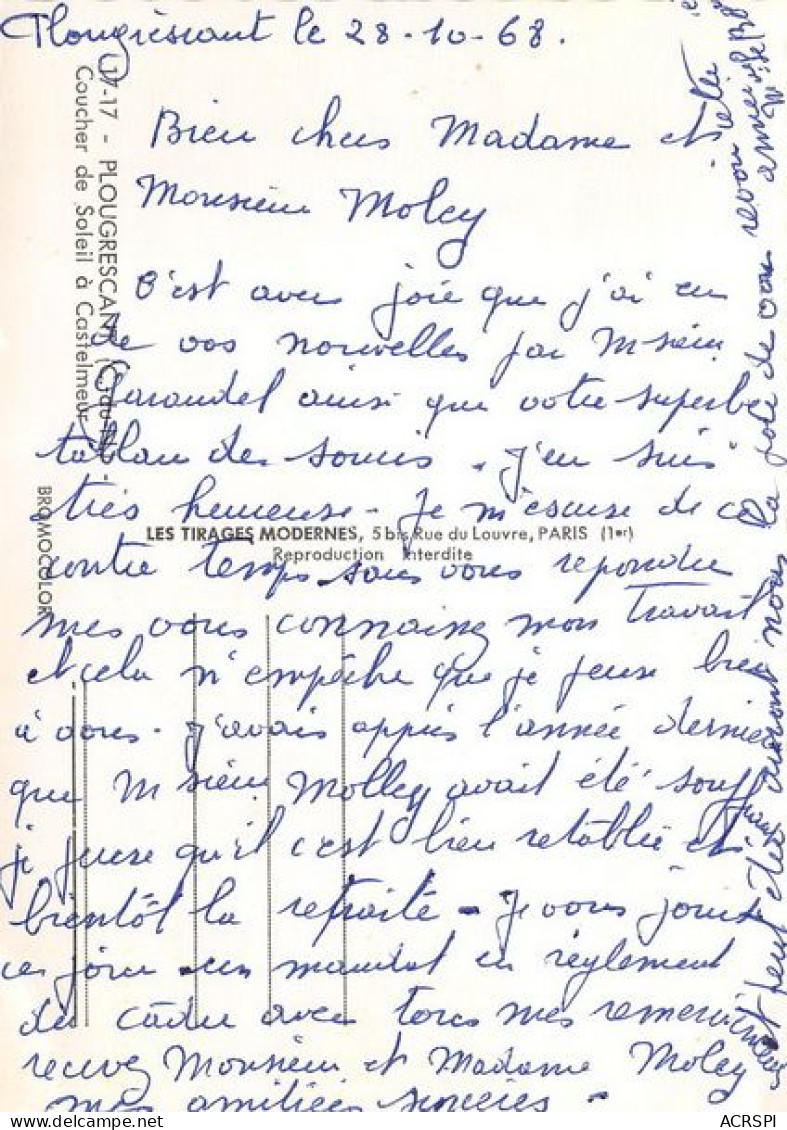 Plougrescant le 28-10-68.
Bien chers Madame et
Monsieur Moley
C'est avec joie que j'ai eu
de vos nouvelles par M sieur
Garandel ainsi que votre superbe
tablau des . J'en suis
très heureuse - Je m'escuse de ce
contre temps sans vous repondre
mes vous connaisez mon Travail
et cela n'empêche que je pense bien
à vous - j'avais appris l'année derniere
que M sieur Molley avait été souffrant
je pense qu'il c'est bien retablie et
bientôt la retraite - Je vous joint
ce jour un mandat en règlement
du cadre avec tous mes remerciements
recevez Monsieur et Madame Moley
mes amitiées sincères -
et peut etre auront nous la joie de vous revoir
17-17 - PLOUGRESCANT
Coucher de Soleil à Castelmeur
BROMOCOLOR
LES TIRAGES MODERNES, 5 bis Rue du Louvre, PARIS (1er)
Reproduction Interdite
ACRSPI